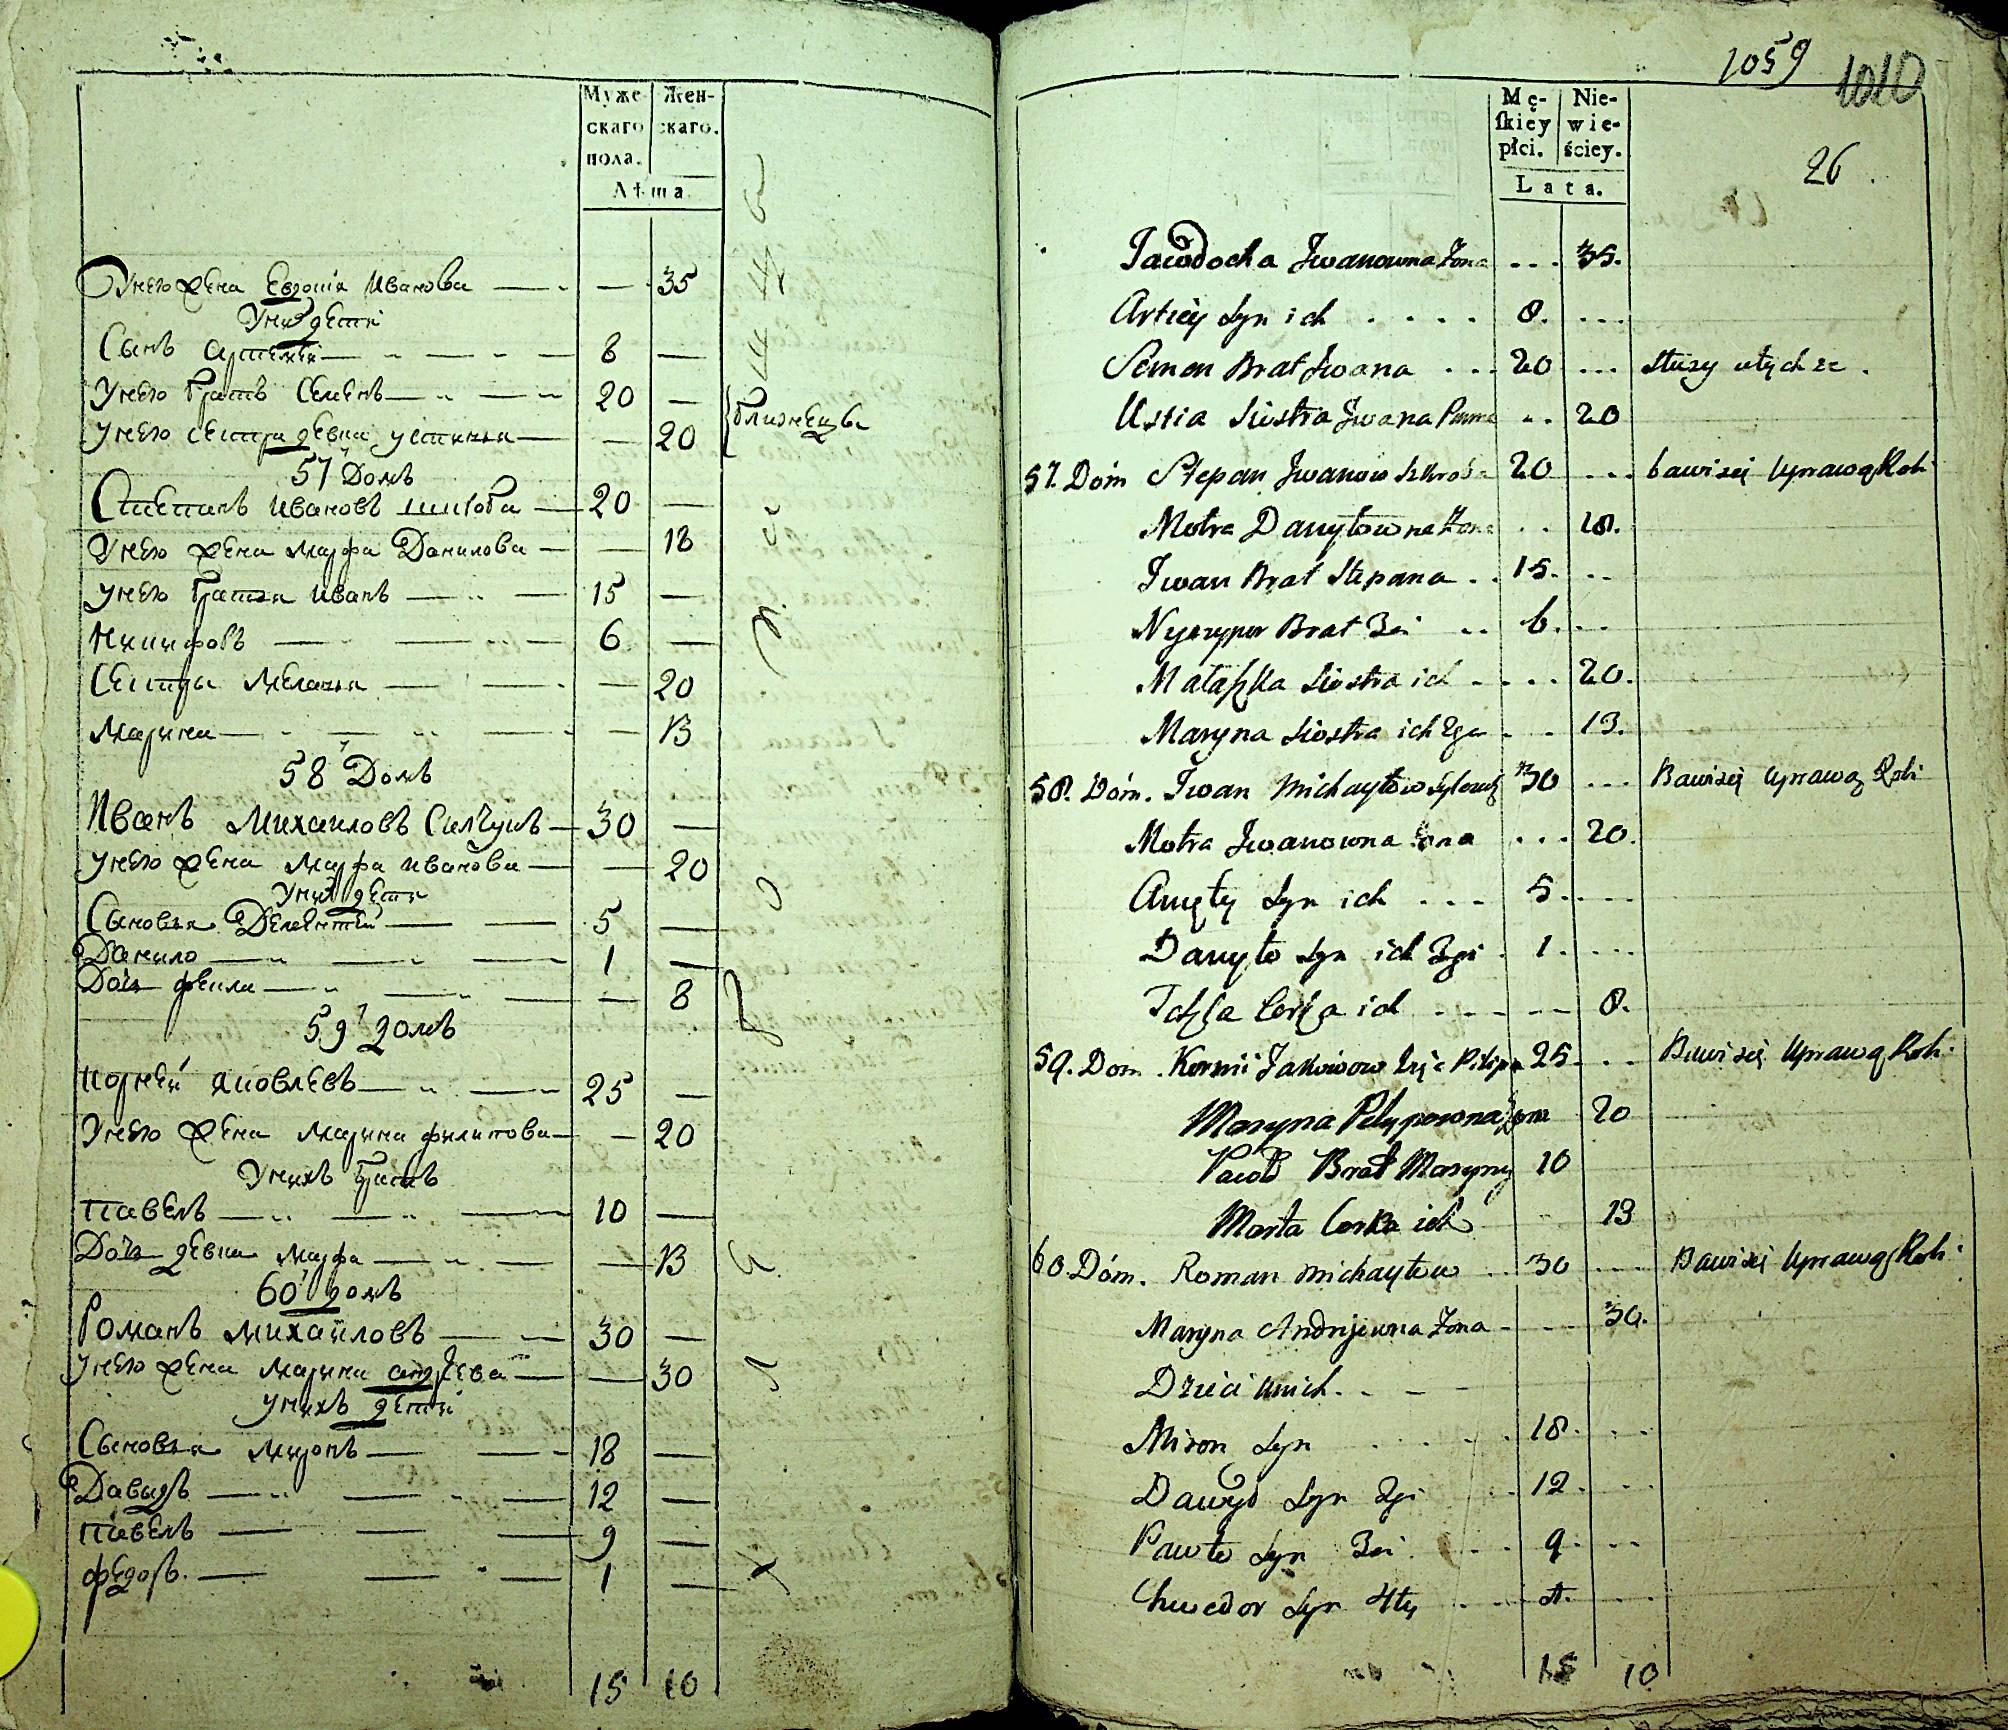 Муже- Жен-
скаго скаго.
пола.
Лѣта
Унего жена Евдокіѧ Иванова — — 35
Унихъ дети
Сынъ Артемей — 8 —
Унего братъ Семенъ — 20 —
Унего сестра девка устинья — — 20
близнецы
57 Домъ
Степанъ Ивановъ — 20 —
Унего жена Марфа Данилова — — 18
Унего братья Иванъ — 15 —
Никифоръ — 6 —
Сестры Меланья — — 20
Марина — — 13
58 Домъ
Иванъ Михайловъ — 30 —
Унего жена Марфа Иванова — — 20
Унихъ дети
Сыновья — 5 —
Данило — 1 —
Дочь Фекла — — 8
59 домъ
Корней Яковлевъ — 25 —
Унего жена Марина Филипова — — 20
Унихъ братъ
Павелъ — 10 —
Дочь девка Марфа — — 13
60 домъ
Романъ Михайловъ — 30 —
Унего жена Марина андреева — — 30
Унихъ дети
Сыновья Миронъ — 18 —
Давыдъ — 12 —
Павелъ — 9 —
Федоръ — 1 —
15 10
1059 1010
Mę- Nie-
ſkiey wie-
płci. ściey.
Lata.
26
Jawdocha Jwanowna Żona ... 35.
Artiey Syn ich .... 8. ...
Semen Brat Jwana ... 20 ... służy utychże.
Ustia Siostra Jwana Panna .. 20
57. Dóm Stepan Jwanow 20 ... bawi się Uprawą Roli
Motra Danyłowna Żona .. 18.
Jwan Brat Stepana .. 15. ..
Nyczypor Brat 3ci .. 6. ..
Małaszka Siostra ich .... 20.
Maryna Siostra ich 2ga .. 13.
58. Dóm. Jwan Michayłow 30 ... Bawi się Uprawą Roli
Motra Jwanowna Żona ... 20.
Syn ich ... 5. ...
Danyło Syn ich 2gi . 1. ...
Tekla Corka ich ..... 8.
59. Dom Kornii Jakowow Zięć Pilipa 25. ... Bawi się Uprawą Roli
Maryna Pylypowna Żona 20
Pawło Brat Maryny 10
Marta Corka ich 13
60. Dóm. Roman Michayłow .. 30 ... Bawi się Uprawą Roli
Maryna Andrijewna Żona - ... 30.
Dzieci Unich. . . -
Miron Syn .... 18. ..
Dawyd Syn 2gi .. 12. ..
Pawło Syn 3ci ... 9. ..
Chwedor Syn 4ty ... 1. ..
15 10